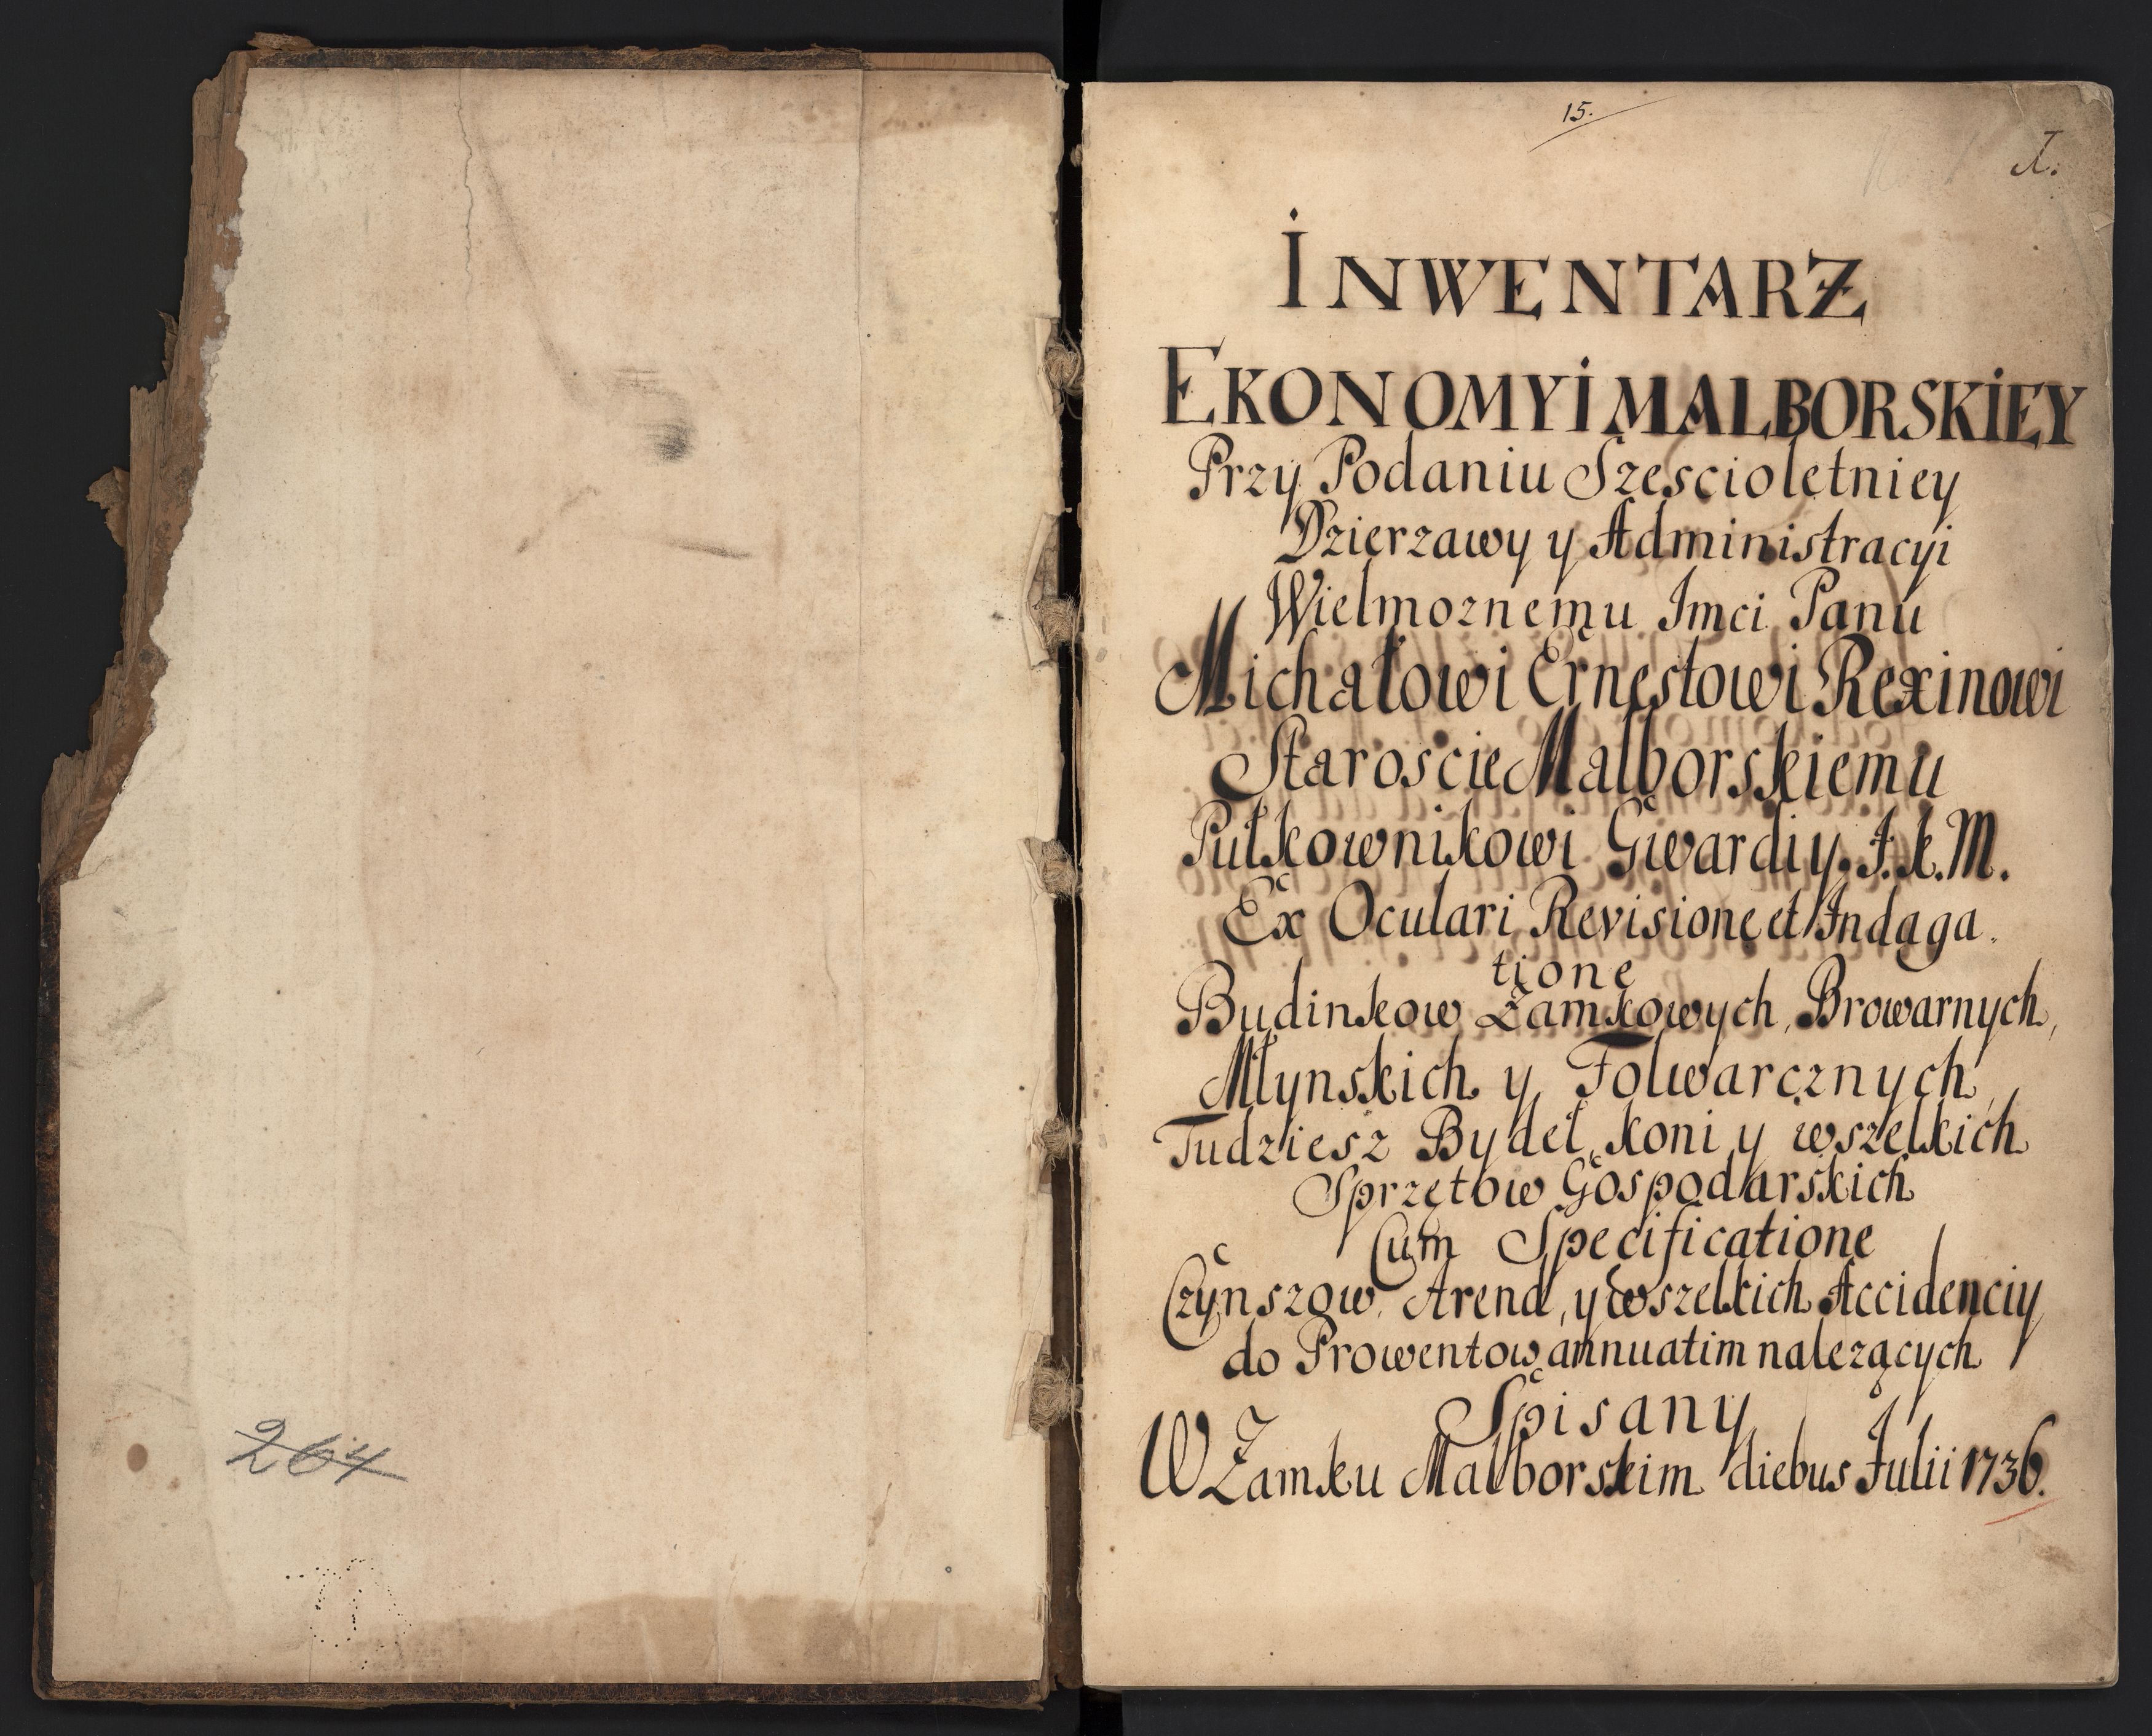 264
15.
I.
INWENTARZ
EKONOMYi MALBORSKiEY
Przy Podaniu Szescioletniey
Dzierzawy y Administracyi
Wielmoznemu Jmci Panu
Michałowi Ernestowi Rexinowi
Staroscie Malborskiemu
Pułkownikowi Gwardiy. J. K. M.
Ex Oculari Revisione et Indaga
tione
Budinkow Zamkowych, Browarnych,
Młynskich y Folwarcznych,
Tudziesz Bydeł, koni y wszelkich
Sprzętow Gospodarskich
Cum Specificatione
Czynszow, Arend, y wszelkich Accidenciy
do Prowentow annuatim nalezących
Spisany
W Zamku Malborskim diebus Julii 1736.